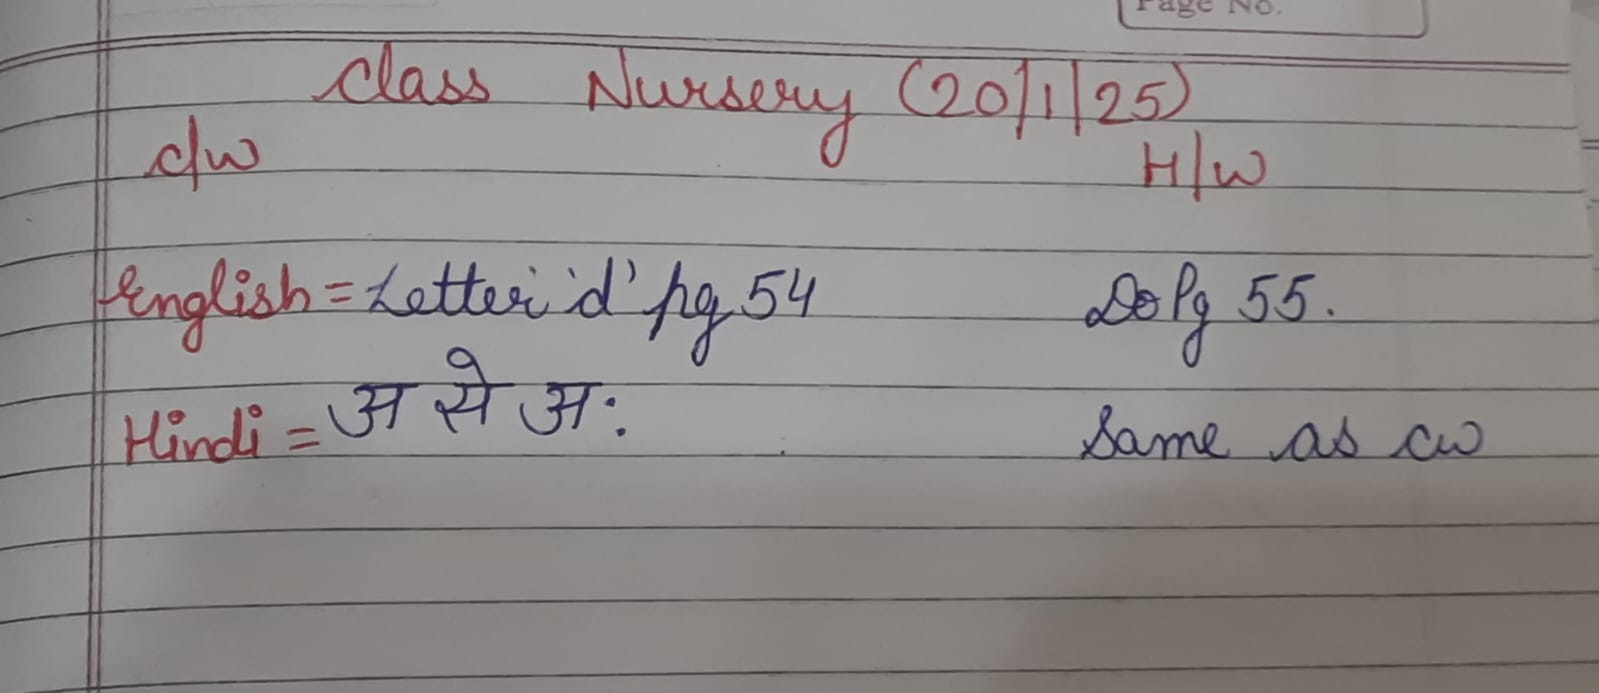 Page No.
Class Nursery (20/1/25)
c/w H/w
English = Letter 'd' pg 54 Do Pg 55.
Hindi = अ से अः Same as cw